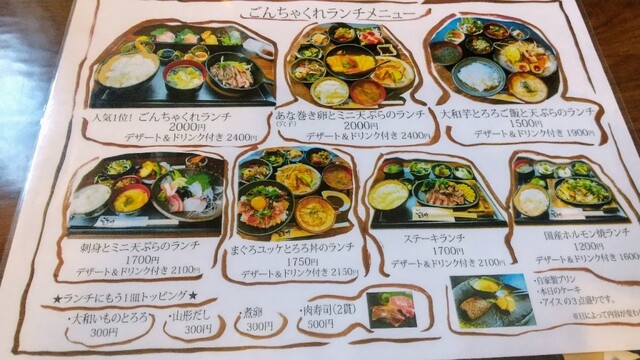 ごんちゃくれランチメニュー
人気1位! ごんちゃくれランチ
2000円
デザート&ドリンク付き 2400円
あな巻き卵とミニ天ぷらのランチ
(穴子)
2000円
デザート&ドリンク付き 2400円
大和芋とろろご飯と天ぷらのランチ
1500円
デザート&ドリンク付き 1900円
刺身とミニ天ぷらのランチ
1700円
デザート&ドリンク付き 2100円
まぐろユッケとろろ丼のランチ
1750円
デザート&ドリンク付き 2150円
ステーキランチ
1700円
デザート&ドリンク付き 2100円
国産ホルモン焼ランチ
1200円
デザート&ドリンク付き 1600円
★ランチにもう1皿トッピング★
・大和いものとろろ
300円
・山形だし
300円
・煮卵
300円
・肉寿司(2貫)
500円
・自家製プリン
・本日のケーキ
・アイスの3点盛りです。
※日によって内容が変わ